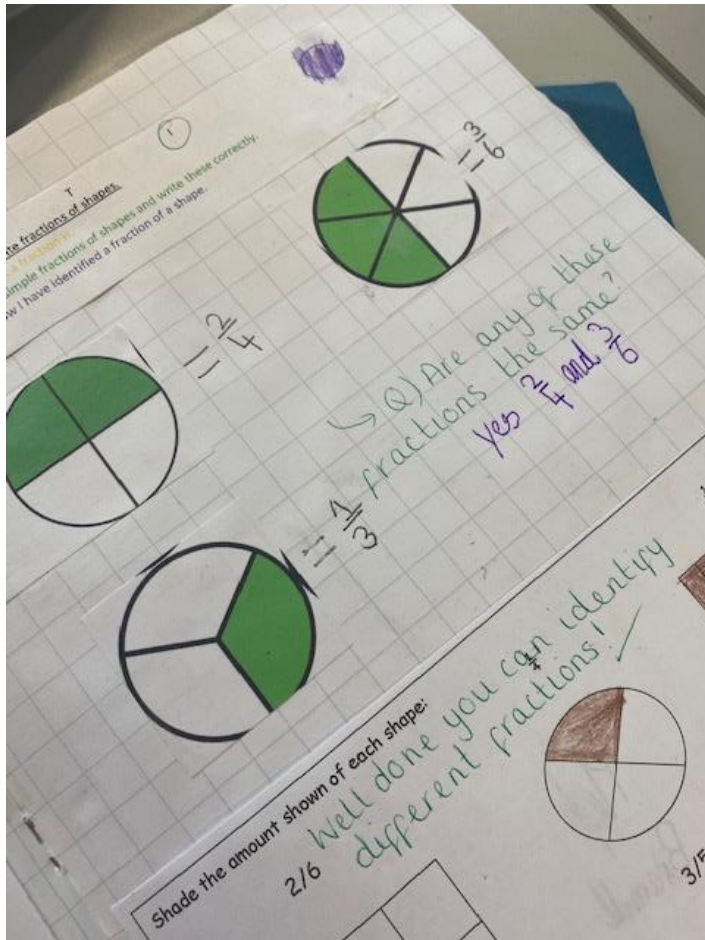 1
T
te fractions of shapes.
a fraction is.
simple fractions of shapes and write these correctly.
w I have identified a fraction of a shape.
= 3/6
= 2/4
Q) Are any of these
fractions the same?
yes 2/4 and 3/6
= 1/3
Well done you can identify
different fractions!
Shade the amount shown of each shape:
2/6
3/5